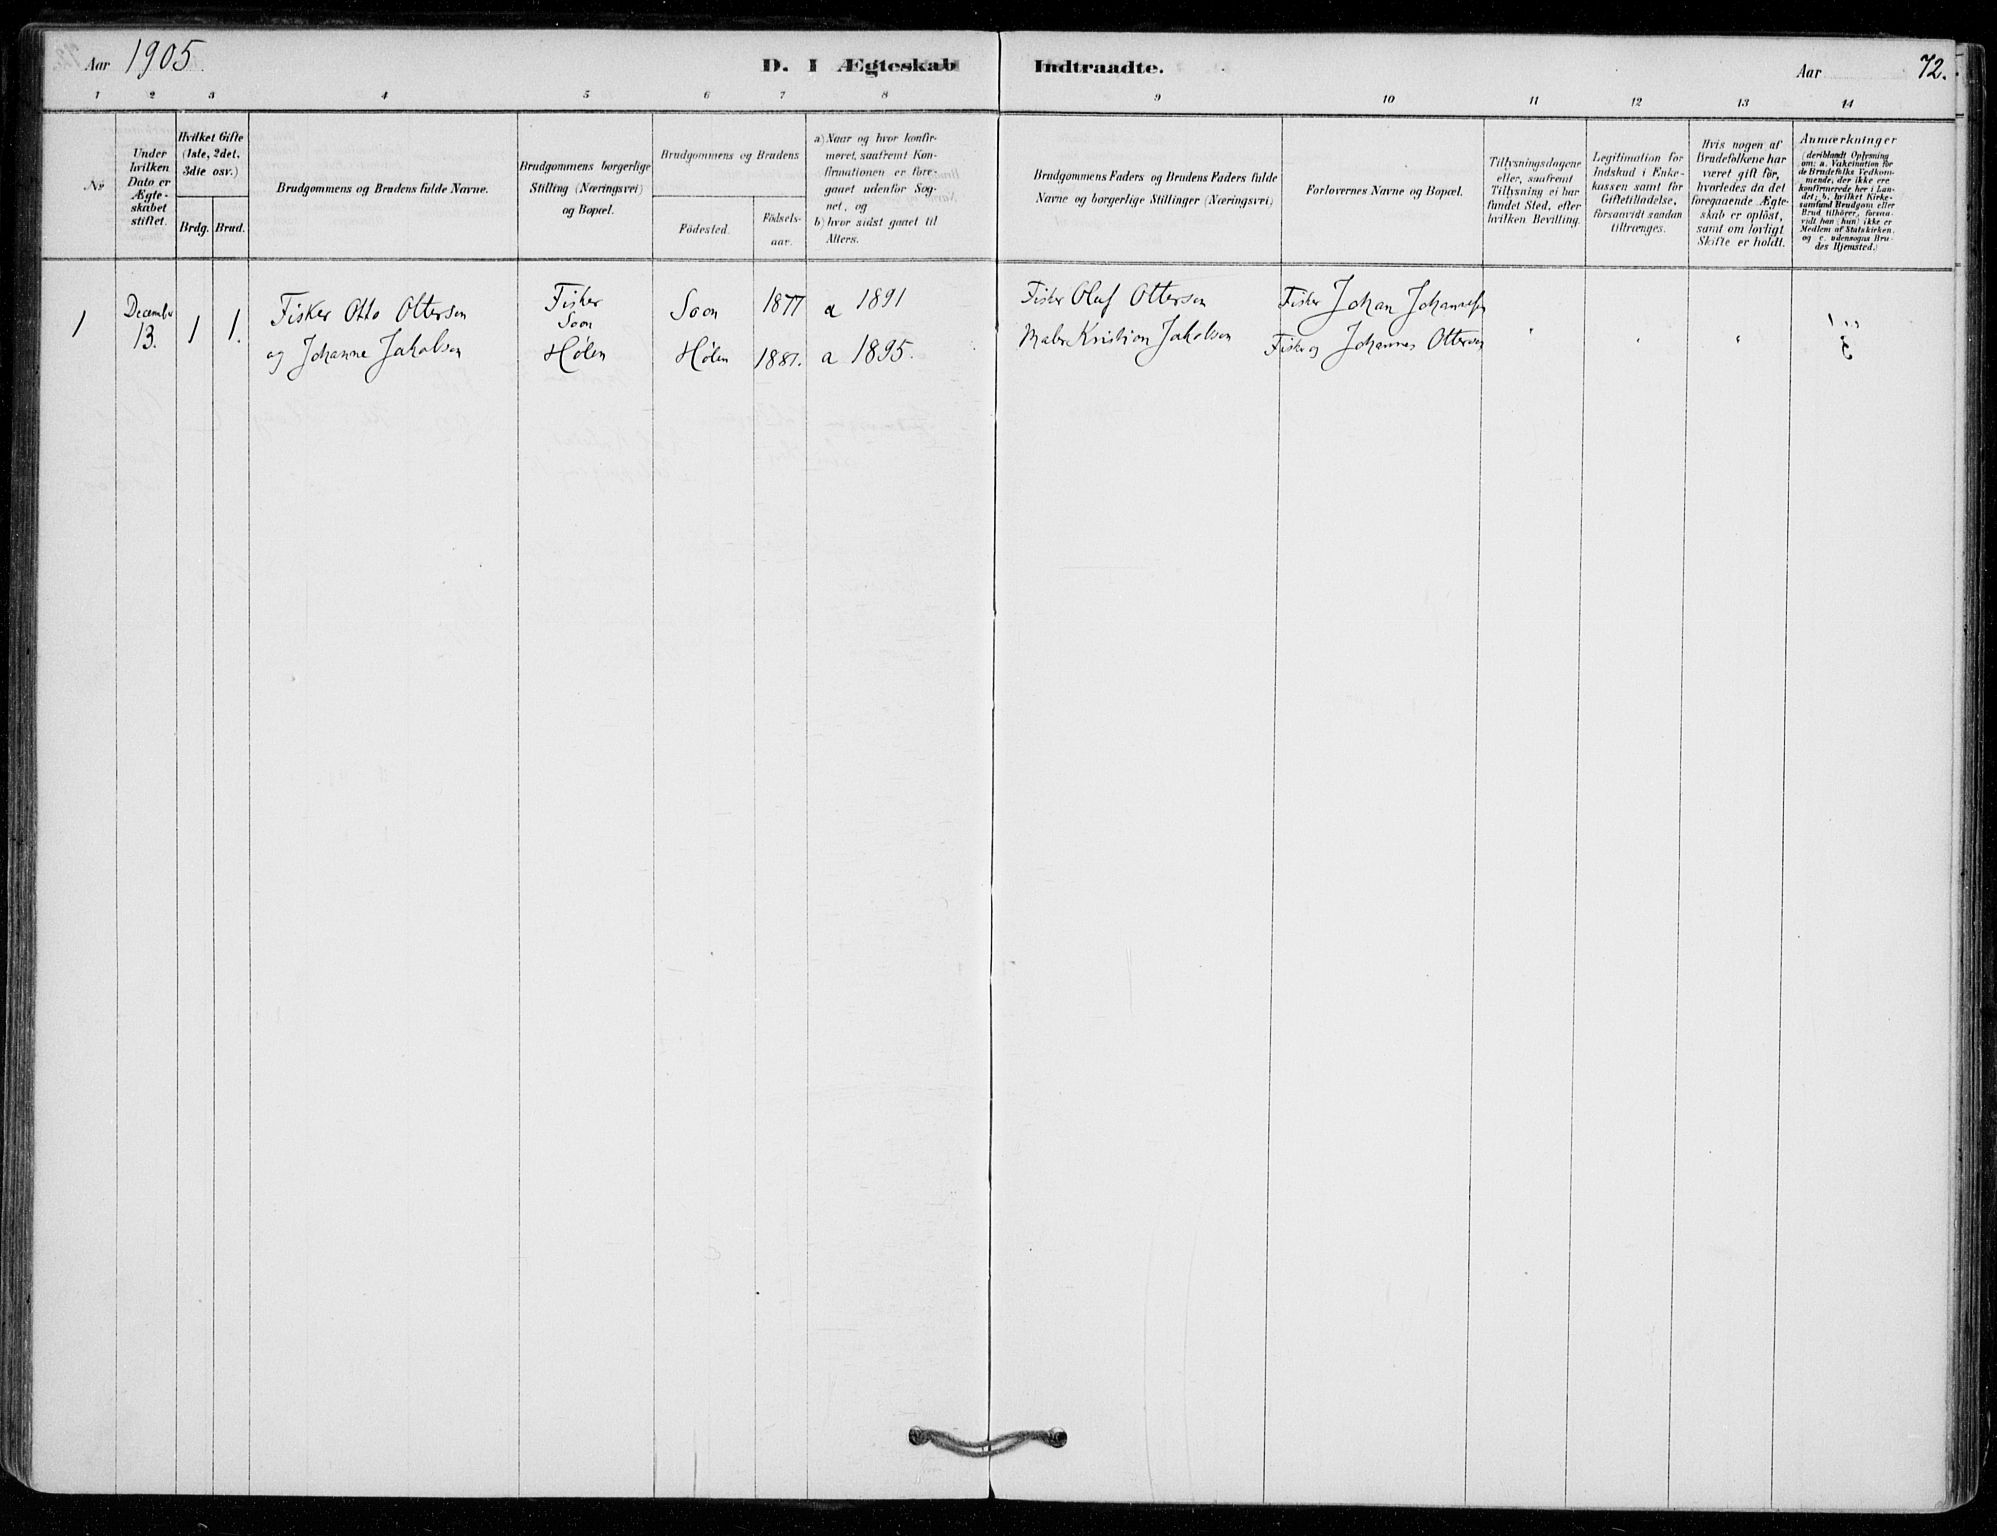 Aar 1905.
D. I Ægteskab Indtraadte.
Aar
72.
1 2 3 4 5 6 7 8 9 10 11 12 13 14
No
Under
hvilken
Dato er
Ægte-
skabet
stiftet.
Hvilket Gifte
(1ste, 2det,
3die osv.)
Brdg. Brud.
Brudgommens og Brudens fulde Navne.
Brudgommens borgerlige
Stilling (Næringsvei)
og Bopæl.
Brudgommens og Brudens
Födested.
Födsels-
aar.
a) Naar og hvor konfir-
meret, saafremt Kon-
firmationen er fore-
gaaet udenfor Sog-
net, og
b) hvor sidst gaaet til
Alters.
Brudgommens Faders og Brudens Faders fulde
Navne og borgerlige Stillinger (Næringsvei)
Forlovernes Navne og Bopæl.
Tillysningsdagene
eller, saafremt
Tillysning ei har
fundet Sted, efter
hvilken Bevilling.
Legitimation for
Indskud i Enke-
kassen samt for
Giftetilladelse,
forsaavidt saadan
tiltrænges.
Hvis nogen af
Brudefolkene har
været gift før,
hvorledes da det
foregaaende Ægte-
skab er opløst,
samt om lovligt
Skifte er holdt.
Anmærkninger
(deriblandt Oplysning
om: a. Vakcination for
de Brudefolks Vedkom-
mende, der ikke ere
konfirmerede her i Lan-
det; b. hvilket Kirke-
samfund Brudgom eller
Brud tilhører, forsaa-
vidt han (hun) ikke er
Medlem af Statskirken.
og c. udensogns Bru-
des Hjemsted.)
1
December
13.
1 1.
Fisker Otto Ottersen
og Johanne Jakobsen
Fisker
Soon
Hølen
Soon
Hølen
1877
1881.
a 1891
a 1895.
Fisker Oluf Ottersen
Maler Kristian Jakobsen
Fisker Johan Johannesen
Fisker og Johannes Ottersen
" " "